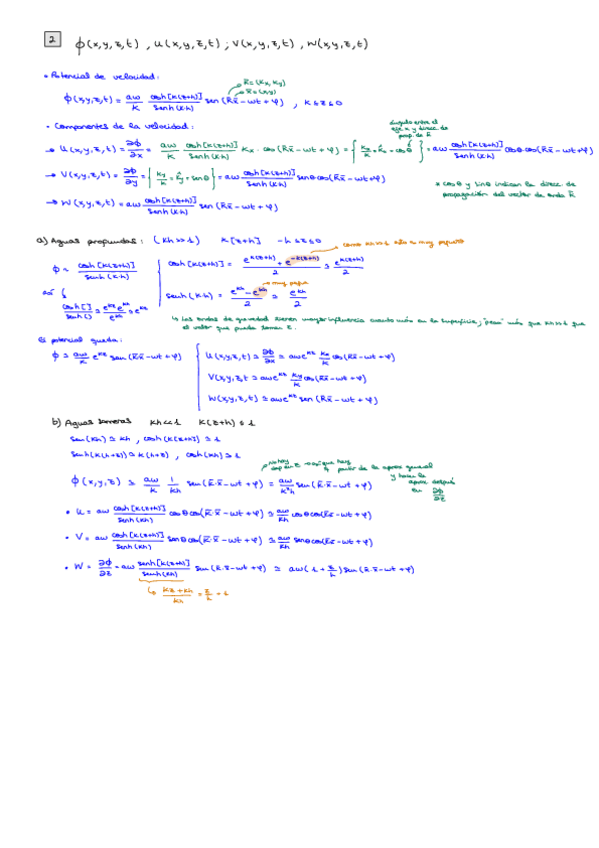 2 ϕ(x,y,z,t) , u(x,y,z,t) ; v(x,y,z,t) , w(x,y,z,t)
• Potencial de velocidad:
k̄ = (kx, ky)
x̄ = (x,y)
ϕ(x,y,z,t) = aω/k cosh[k(z+h)]/senh(k·h) sen(k̄x̄ − ωt + φ) ,
• Componentes de la velocidad:
ángulo entre el eje x y direcc. de prop. de k̄
→ u(x,y,z,t) = ∂ϕ/∂x = aω/k cosh[k(z+h)]/senh(k·h) kx · cos(k̄x̄ − ωt + φ) = { kx/k = k̂x = cosθ } = aω cosh[k(z+h)]/senh(k·h) cosθ·cos(k̄x̄ − ωt + φ)
→ v(x,y,z,t) = ∂ϕ/∂y = { ky/k = k̂y = senθ } = aω cosh[k(z+h)]/senh(k·h) senθ cos(k̄x̄ − ωt + φ)
* cosθ y sinθ indican la direcc. de propagación del vector de onda k̄
→ w(x,y,z,t) = aω cosh[k(z+h)]/senh(k·h) sen(k̄x̄ − ωt + φ)
a) Aguas profundas: (kh >> 1) k[z+h] −h ≤ z ≤ 0
como kh>>1 esto es muy pequeño
ϕ ~ cosh[k(z+h)]/senh(k·h)
cosh[k(z+h)] = e^k(z+h) + e^−k(z+h) / 2 ≃ e^k(z+h) / 2
muy pequeño
así
cosh[]/senh() ≃ e^kz e^kh / e^kh ≃ e^kz
senh(k·h) = e^kh − e^kh / 2 ≃ e^kh / 2
↳ las ondas de gravedad tienen mayor influencia cuanto más en la superficie, "pesa" más que kh>>1 que el valor que pueda tomar z.
El potencial queda:
ϕ ≃ aω/k e^kz sen(k̄x̄ − ωt + φ)
u(x,y,z,t) ≃ ∂ϕ/∂x ≃ aω e^kz kx/k cos(k̄x̄ − ωt + φ)
v(x,y,z,t) ≃ aω e^kz ky/k cos(k̄x̄ − ωt + φ)
w(x,y,z,t) ≃ aω e^kz sen(k̄x̄ − ωt + φ)
b) Aguas someras kh<<1 k(z+h) ≤ 1
sen(kh) ≃ kh , cosh(k(z+h)) ≃ 1
senh(k(h+z)) ≃ k(h+z) , cosh(kh) ≃ 1
No hay dep. en z → así que hay partir de la aprox general y hacer la aprox después en ∂ϕ/∂z
ϕ(x,y,z) ≃ aω/k 1/kh sen(k̄·x̄ − ωt + φ) = aω/k²h sen(k̄·x̄ − ωt + φ)
• u = aω cosh[k(z+h)]/senh(kh) cosθ cos(k̄·x̄ − ωt + φ) ≃ aω/kh cosθ cos(k̄x̄ − ωt + φ)
• v = aω cosh[k(z+h)]/senh(kh) senθ cos(k̄·x̄ − ωt + φ) ≃ aω/kh senθ cos(k̄x̄ − ωt + φ)
• w = ∂ϕ/∂z = aω senh[k(z+h)]/senh(kh) sen(k̄·x̄ − ωt + φ) ≃ aω(1 + z/h) sen(k̄·x̄ − ωt + φ)
↳ kz + kh / kh = z/h + 1